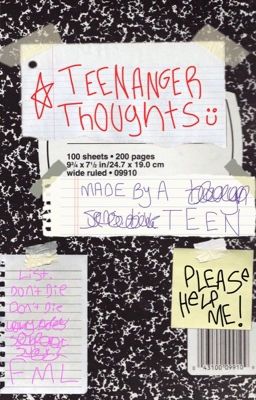 TEENANGER
Thoughts
100 sheets • 200 pages
9¾ x 7½ in/24.7 x 19.0 cm
wide ruled • 09910
MADE By A
TEEN
List.
Don't Die
Don't Die
FML
PLEASE
HELP
ME!
43100 09910